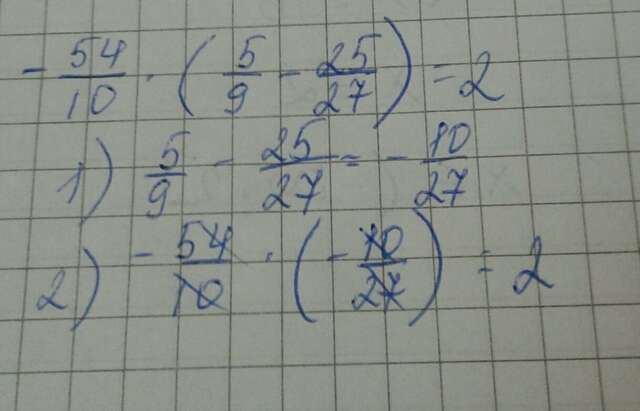 - 54/10 · (5/9 - 25/27) = 2
1) 5/9 - 25/27 = - 10/27
2) - 54/10 · (- 10/27) = 2